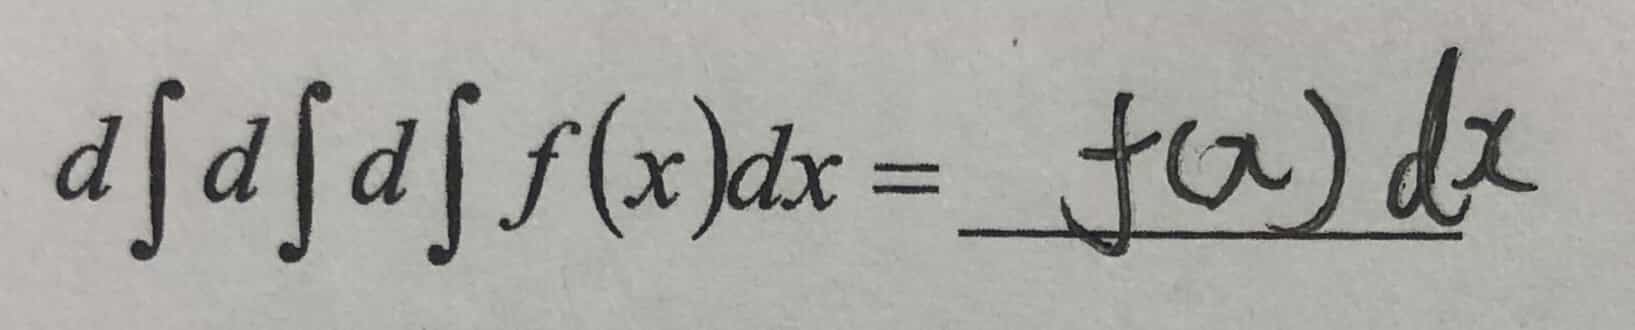 d∫d∫d∫f(x)dx = f(x) dx